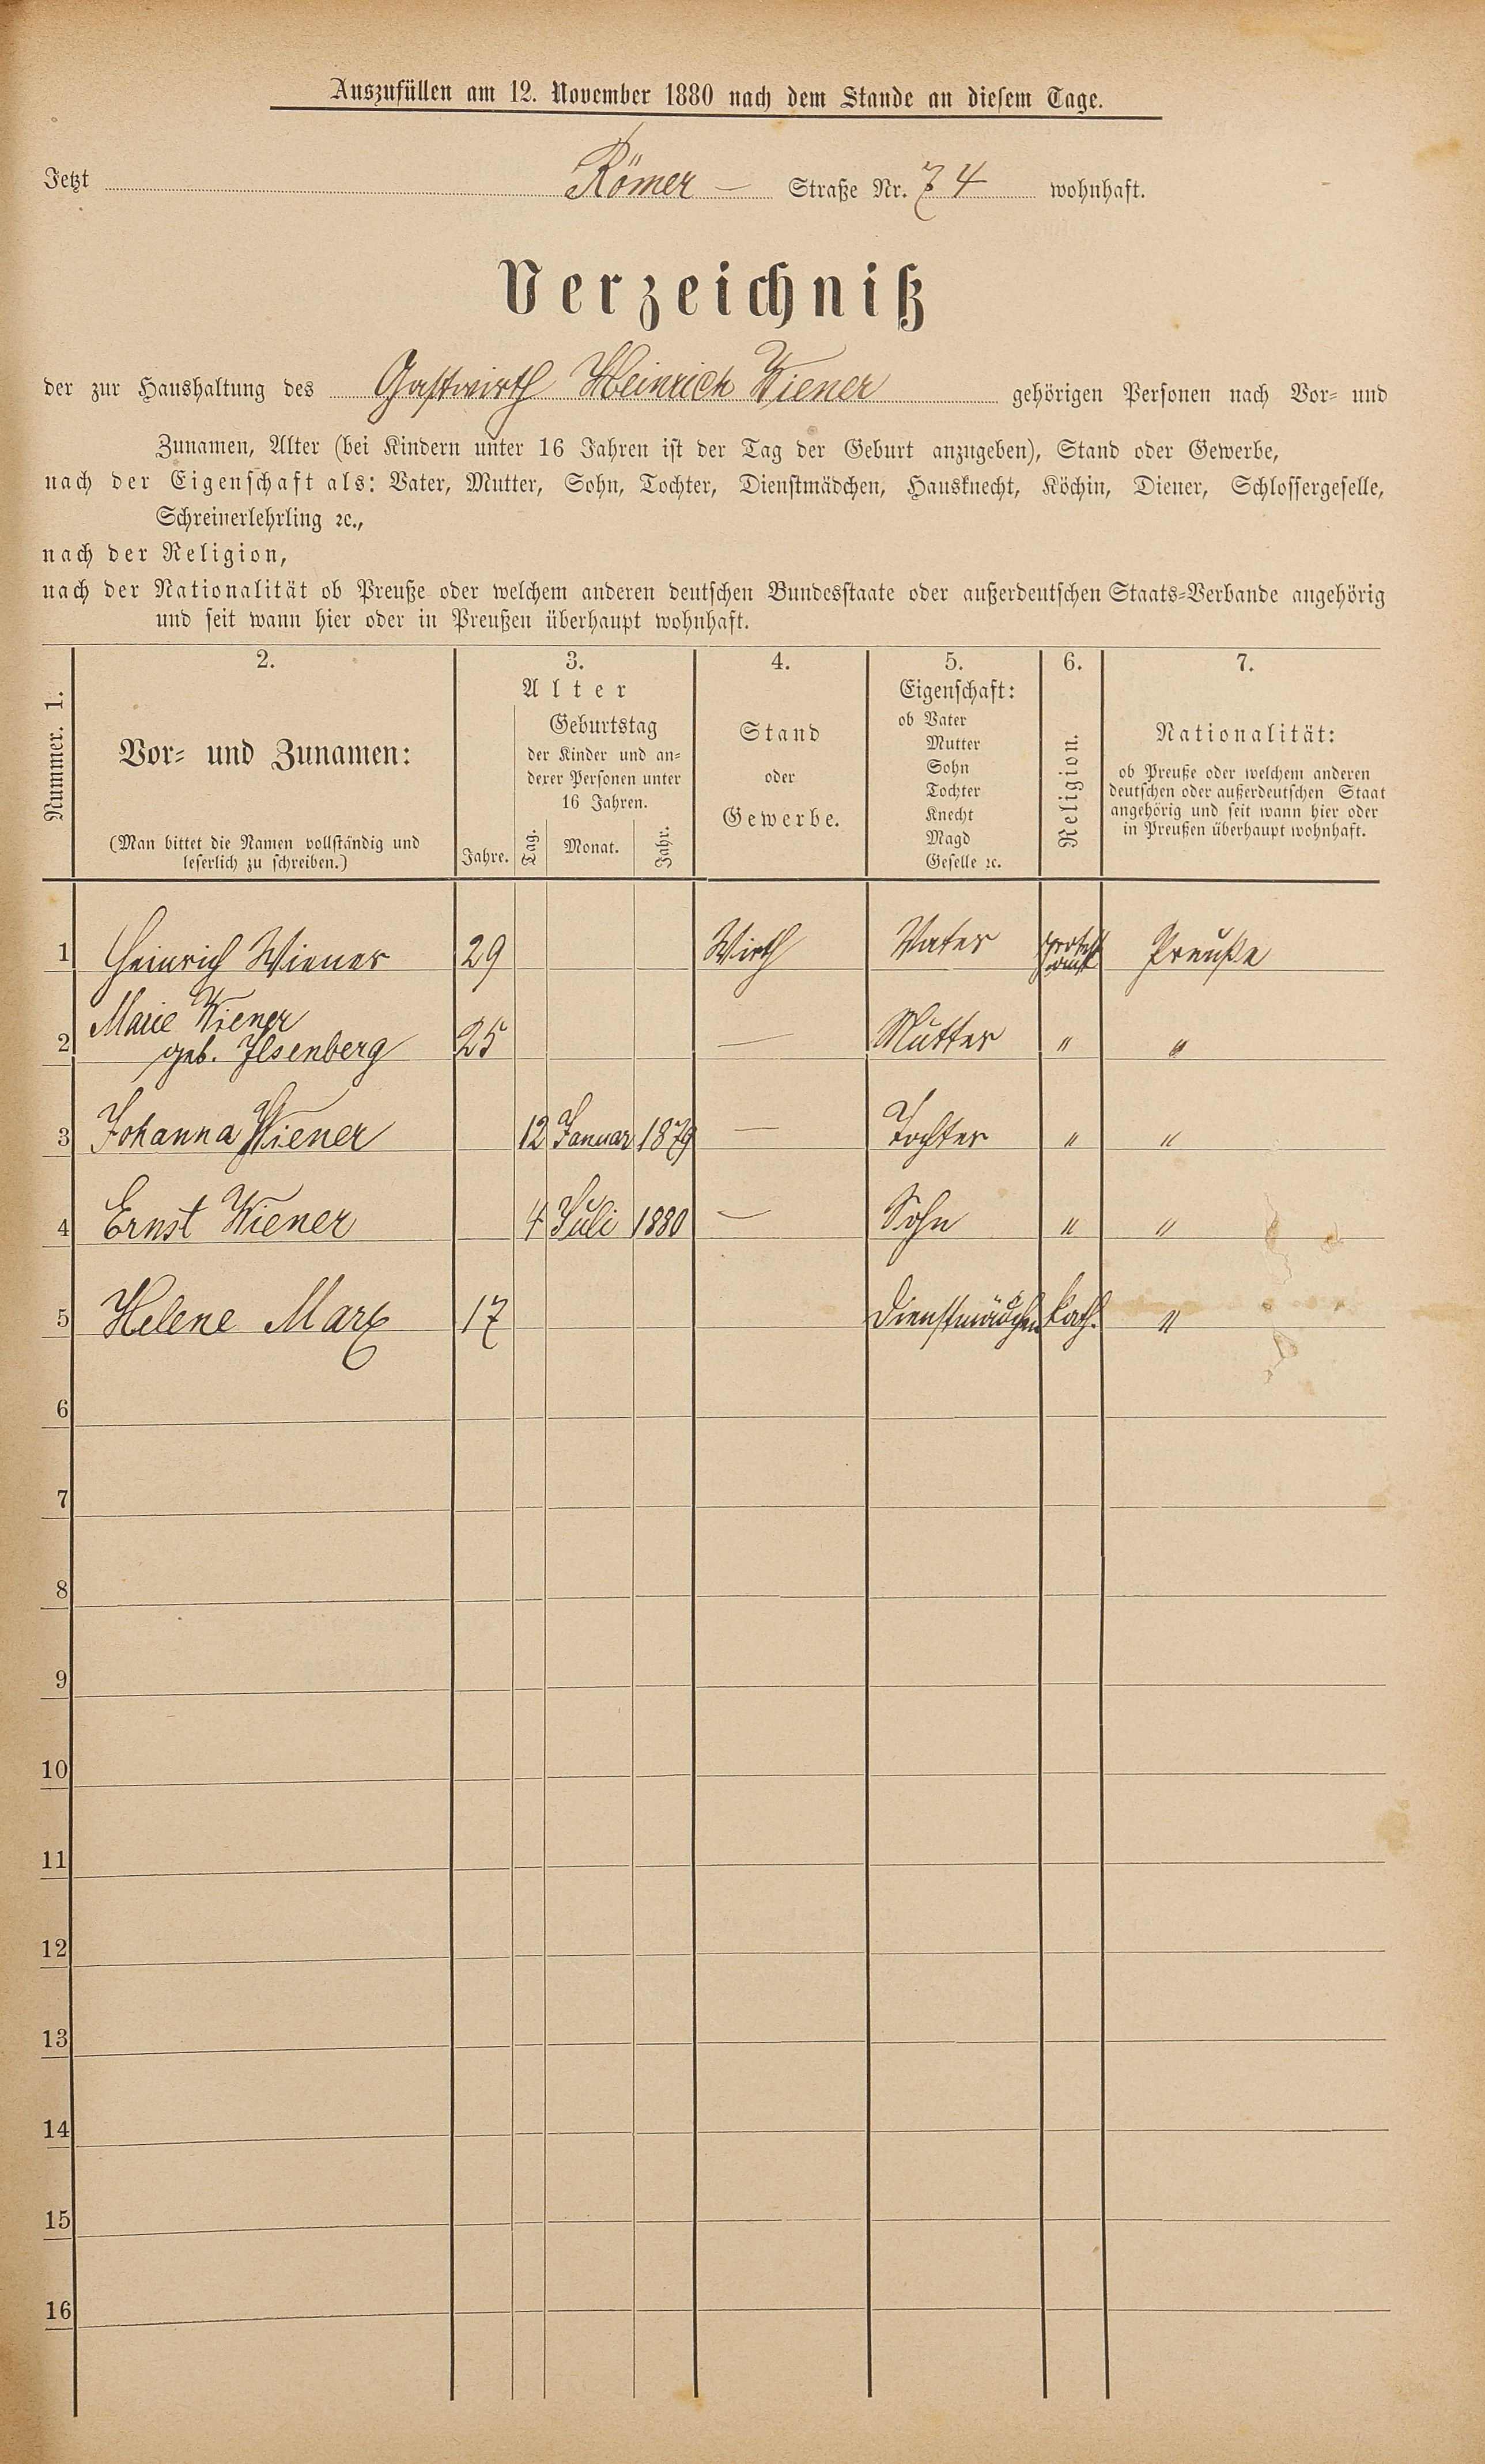 Auszufüllen am 12. November 1880 nach dem Stande an diesem Tage.
Jetzt Römer – Straße Nr. 74 wohnhaft.
Verzeichniß
der zur Haushaltung des Gastwirth Heinrich Wiener gehörigen Personen nach Vor- und
Zunamen, Alter (bei Kindern unter 16 Jahren ist der Tag der Geburt anzugeben), Stand oder Gewerbe,
nach der Eigenschaft als: Vater, Mutter, Sohn, Tochter, Dienstmädchen, Hausknecht, Köchin, Diener, Schlossergeselle,
Schreinerlehrling ꝛc.,
nach der Religion,
nach der Nationalität ob Preuße oder welchem anderen deutschen Bundesstaate oder außerdeutschen Staats-Verbande angehörig
und seit wann hier oder in Preußen überhaupt wohnhaft.
Nummer. 1.
2.
Vor- und Zunamen:
(Man bittet die Namen vollständig und
leserlich zu schreiben.)
3.
Alter
Jahre.
Geburtstag
der Kinder und an-
derer Personen unter
16 Jahren.
Tag. Monat. Jahr.
4.
Stand
oder
Gewerbe.
5.
Eigenschaft:
ob Vater
Mutter
Sohn
Tochter
Knecht
Magd
Geselle ꝛc.
6.
Religion.
7.
Nationalität:
ob Preuße oder welchem anderen
deutschen oder außerdeutschen Staat
angehörig und seit wann hier oder
in Preußen überhaupt wohnhaft.
1 Heinrich Wiener 29 Wirth Vater protest
ant Preuße
2 Marie Wiener
geb. Ilsenberg 25 — Mutter " "
3 Johanna Wiener 12 Januar 1879 — Tochter " "
4 Ernst Wiener 4 Juli 1880 — Sohn " "
5 Helene Marx 17 Dienstmädchen kath. "
6
7
8
9
10
11
12
13
14
15
16